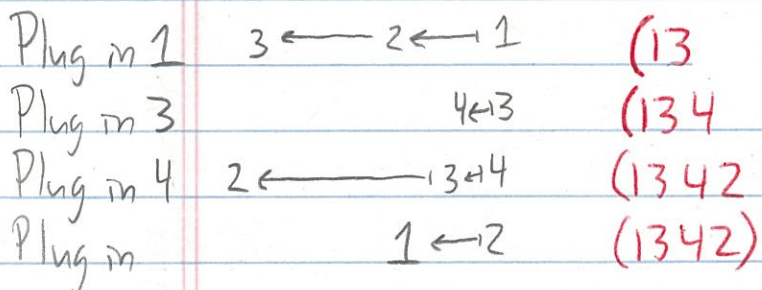 Plug in 1 3 ← 2 ← 1 (13
Plug in 3 4 ← 3 (134
Plug in 4 2 ← 3 ← 4 (1342
Plug in 1 ← 2 (1342)